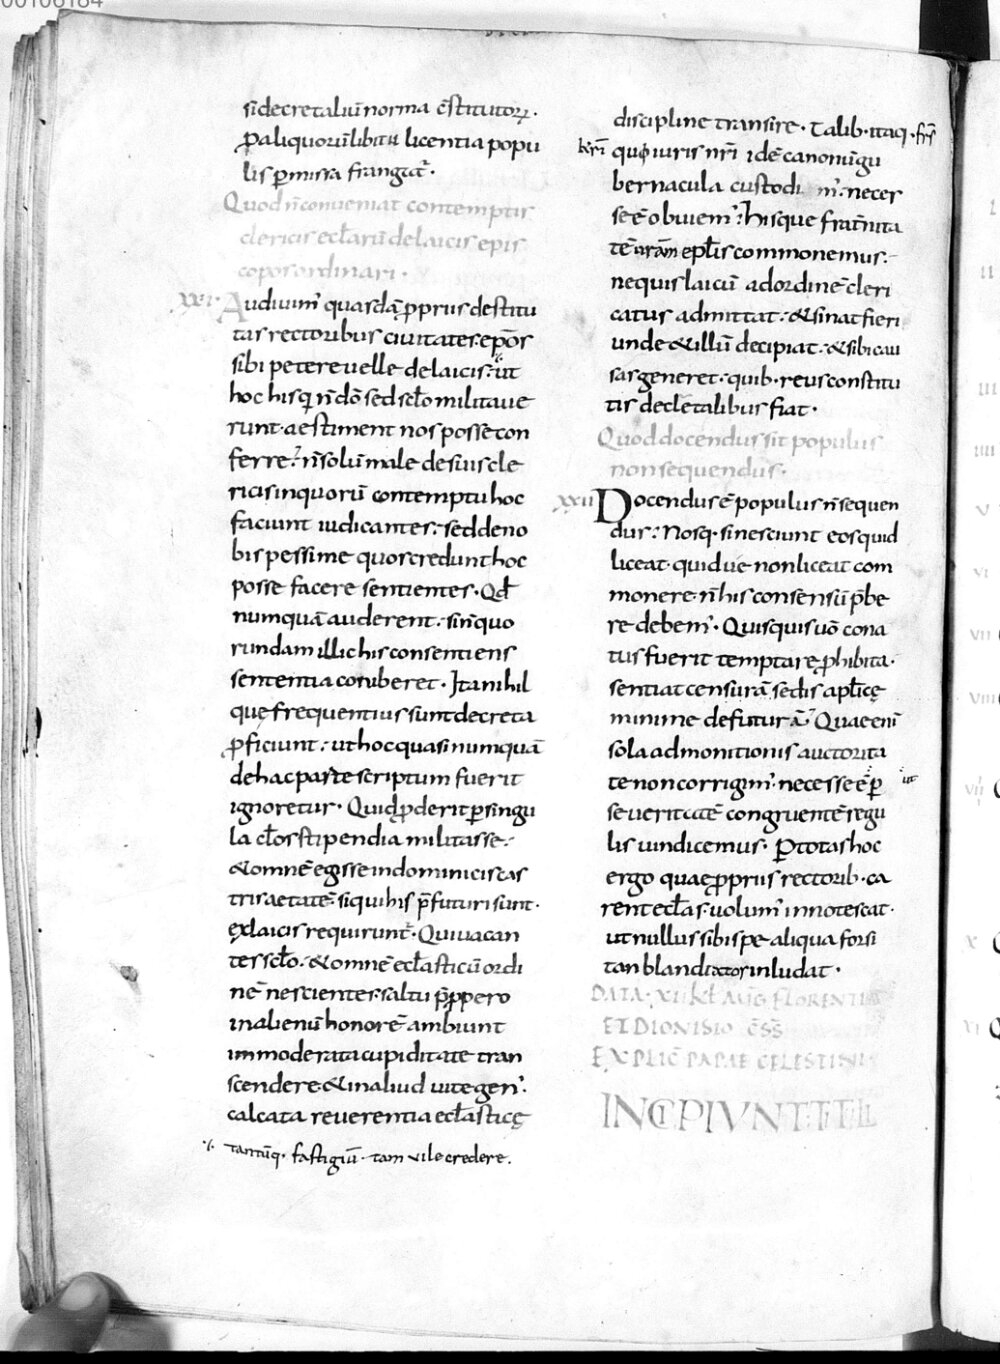 sidecretaliū norma cōstitutorꝝ.
ꝑaliquorū libitu licentia popu
lis ꝑmissa frangat̄.
Quod n̄ conveniat contemptis
clericis eccl̄arū de laicis epis
copos ordinari.
xxi. Audivim᾽ quasdā ꝓpriis destitu
tas rectoribus civitates. ep̄os
sibi petere velle de laicis. ut
hoc hisq; n̄ dō sed sc̄lo militave
runt. aestiment nos posse con
ferre. n̄ solū male de suis cle
ricis inquorū contemptu hoc
faciunt iudicantes. sed de no
bis pessime quos credunt hoc
posse facere sentientes. Qd̄
numquā auderent. sin̄ quo
rundam illic his consentiens
sententia coniberet. Ita nihil
quę frequentius sunt decreta
ꝓficiunt. ut hoc quasi numquā
de hac parte scriptum fuerit
ignoretur. Quid ꝓderit ꝑ singu
la cl̄os stipendia militasse.
& omnē egisse in dominicis cas
tris aetatē si qui his p̄futuri sunt.
ex laicis requirunt̄. Qui vacan
tes sc̄lo. & omnē eccl̄asticū ordi
nē nescientes. saltu p̄ppero
in alienū honorē ambiunt
immoderata cupiditate tran
scendere. & in aliud vitę gen᾽.
calcata reverentia eccl̄asticę
tantūq. fastigiū. tam vile credere.
discipline transire. Talib. itaq. frs̄
kr̄i quę iuris nr̄i ide canonū gu
bernacula custodi m᾽. neces
se ē obviem᾽. hisque frat̄nita
tē vr̄am ep̄lis commonemus.
nequis laicū ad ordinē cleri
catus admittat. & sinat fieri
unde & illū decipiat. & sibi cau
sas generet. quib. reus constitu
tis decletalibus fiat.
Quod docendus sit populus
non sequendus.
xxii Docendus ē populus n̄ sequen
dus. Nosq. si nesciunt eos quid
liceat. quid ve non liceat com
monere. n̄ his consensū p̄be
re debem᾽. Quisquis vō cona
tus fuerit temptare ꝓhibita.
sentiat censurā sedis apl̄icę
minime defuturā. Quae enī
sola admonitionis auctorita
te non corrigim᾽. necesse ē ꝑ ut
severitatē congruentē regu
lis vindicemus. P totas hoc
ergo quae ꝓpriis rectorib. ca
rent eccl̄as. volum᾽ innotescat.
ut nullus sibi spe aliqua forsi
tan blanditor inludat.
DATA. XII. kl̄ AUG FLORENTIO
ET DIONISIO C̄S̄S̄
EXPLIC̄ PAPAE CELESTINI
INCIPIUNT. TITL